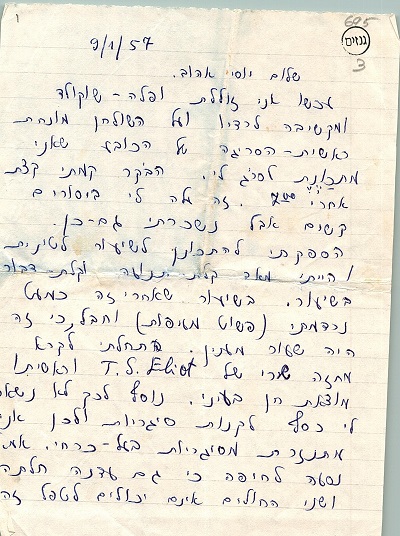 1
גנזים
3
9/1/57
שלום יוסי אהוב.
עכשו אני זוללת ופלה-שוקולד
ומקשיבה לרדיו ועל השולחן מונחת
ראשית-הסריגה של הכובע שאני
מתכוננת לסרג לי. הבקר קמתי קצת
אחרי . זה עלה לי ביסורים
קשים אבל נשכרתי גם-כן.
הספקתי להתכונן לשיעור לטינית
והייתי מאד קלת-תנועה וקלת-דבור
בשיעור. בשיעור שאחרי זה כמעט
נרדמתי (פשוט מעיפות) וחבל, כי זה
היה שעור מענין. התחלתי לקרא
מחזה שירי של T.S. Eliot וראשיתו
מוצאת חן בעיני. נוסף לכך לא נשאר
לי כסף לקנות סיגריות ולכן אני
מתנזרת מסיגריות בעל-כרחי. אמא
נסעה לחיפה כי גם עדנה חלתה
ושני החולים אינם יכולים לטפל זה